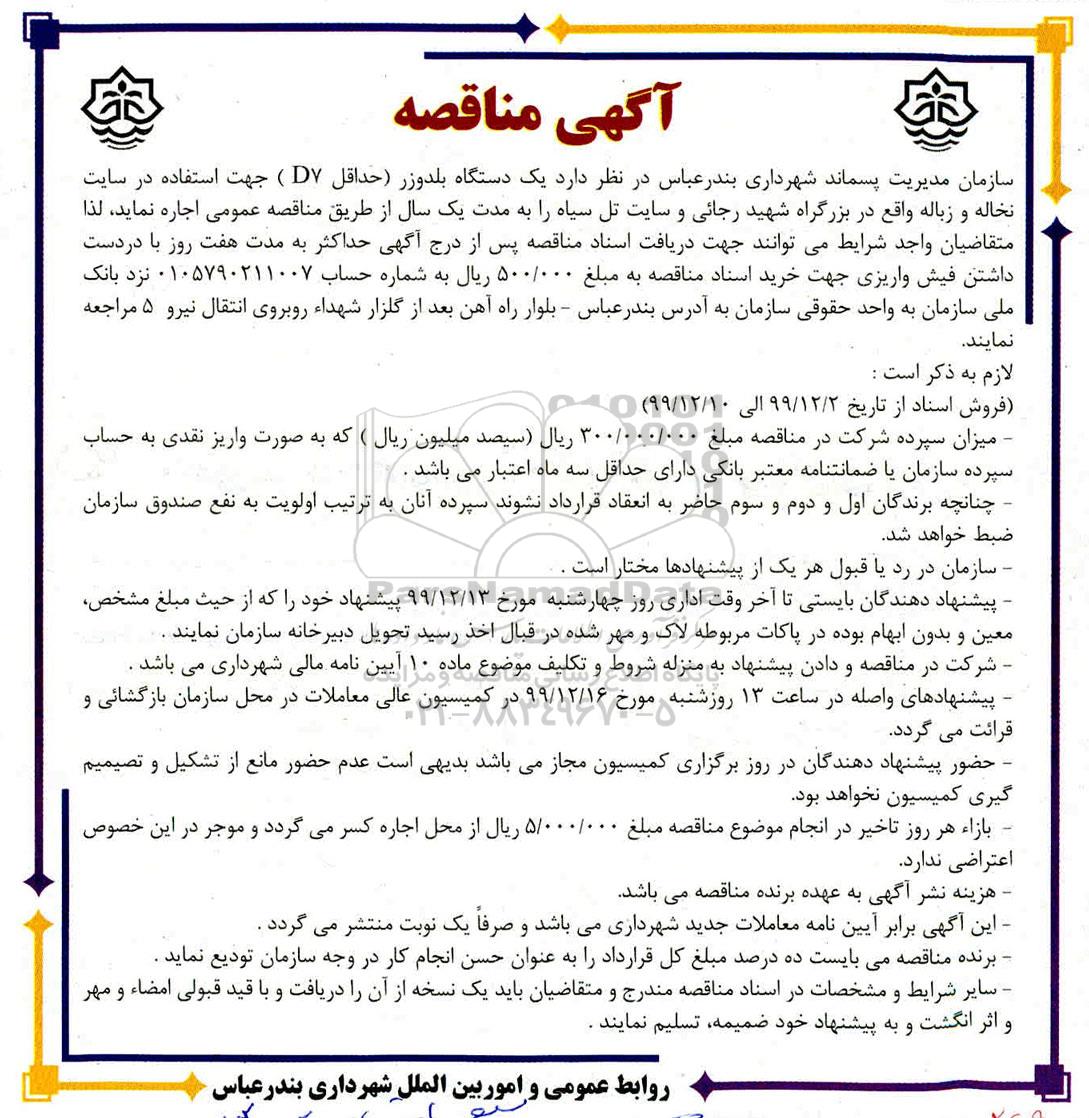 آگهی مناقصه
سازمان مدیریت پسماند شهرداری بندرعباس در نظر دارد یک دستگاه بلدوزر (حداقل D۷ ) جهت استفاده در سایت
نخاله و زباله واقع در بزرگراه شهید رجائی و سایت تل سیاه را به مدت یک سال از طریق مناقصه عمومی اجاره نماید، لذا
متقاضیان واجد شرایط می توانند جهت دریافت اسناد مناقصه پس از درج آگهی حداکثر به مدت هفت روز با دردست
داشتن فیش واریزی جهت خرید اسناد مناقصه به مبلغ ۵۰۰/۰۰۰ ریال به شماره حساب ۰۱۰۵۷۹۰۲۱۱۰۰۷ نزد بانک
ملی سازمان به واحد حقوقی سازمان به آدرس بندرعباس - بلوار راه آهن بعد از گلزار شهداء روبروی انتقال نیرو ۵ مراجعه
نمایند.
لازم به ذکر است :
(فروش اسناد از تاریخ ۹۹/۱۲/۲ الی ۹۹/۱۲/۱۰)
- میزان سپرده شرکت در مناقصه مبلغ ۳۰۰/۰۰۰/۰۰۰ ریال (سیصد میلیون ریال ) که به صورت واریز نقدی به حساب
سپرده سازمان یا ضمانتنامه معتبر بانکی دارای حداقل سه ماه اعتبار می باشد .
- چنانچه برندگان اول و دوم و سوم حاضر به انعقاد قرارداد نشوند سپرده آنان به ترتیب اولویت به نفع صندوق سازمان
ضبط خواهد شد.
- سازمان در رد یا قبول هر یک از پیشنهادها مختار است .
ParsNamadData
- پیشنهاد دهندگان بایستی تا آخر وقت اداری روز چهارشنبه مورخ ۹۹/۱۲/۱۳ پیشنهاد خود را که از حیث مبلغ مشخص،
معین و بدون ابهام بوده در پاکات مربوطه لاک و مهر شده در قبال اخذ رسید تحویل دبیرخانه سازمان نمایند .
- شرکت در مناقصه و دادن پیشنهاد به منزله شروط و تکلیف موضوع ماده ۱۰ آیین نامه مالی شهرداری می باشد .
پایگاه اطلاع رسانی مناقصه و مزایده
- پیشنهادهای واصله در ساعت ۱۳ روزشنبه مورخ ۹۹/۱۲/۱۶ در کمیسیون عالی معاملات در محل سازمان بازگشائی و
۰۲۱-۸۸۳۴۹۶۷۰-۵
قرائت می گردد.
- حضور پیشنهاد دهندگان در روز برگزاری کمیسیون مجاز می باشد بدیهی است عدم حضور مانع از تشکیل و تصیمیم
گیری کمیسیون نخواهد بود.
- بازاء هر روز تاخیر در انجام موضوع مناقصه مبلغ ۵/۰۰۰/۰۰۰ ریال از محل اجاره کسر می گردد و موجر در این خصوص
اعتراضی ندارد.
- هزینه نشر آگهی به عهده برنده مناقصه می باشد.
- این آگهی برابر آیین نامه معاملات جدید شهرداری می باشد و صرفاً یک نوبت منتشر می گردد .
- برنده مناقصه می بایست ده درصد مبلغ کل قرارداد را به عنوان حسن انجام کار در وجه سازمان تودیع نماید .
- سایر شرایط و مشخصات در اسناد مناقصه مندرج و متقاضیان باید یک نسخه از آن را دریافت و با قید قبولی امضاء و مهر
و اثر انگشت و به پیشنهاد خود ضمیمه، تسلیم نمایند .
روابط عمومی و اموربین الملل شهرداری بندرعباس